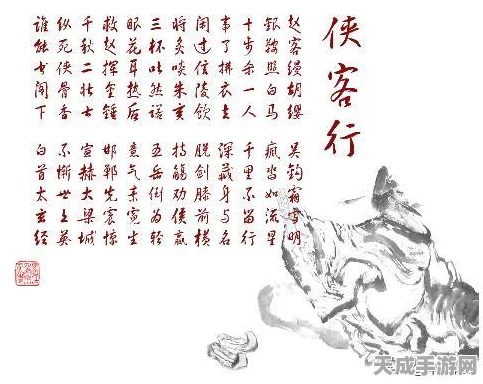 侠客行
赵客缦胡缨 吴钩霜雪明
银鞍照白马 飒沓如流星
十步杀一人 千里不留行
事了拂衣去 深藏身与名
闲过信陵饮 脱剑膝前横
将炙啖朱亥 持觞劝侯嬴
三杯吐然诺 五岳倒为轻
眼花耳热后 意气素霓生
救赵挥金锤 邯郸先震惊
千秋二壮士 宣赫大梁城
纵死侠骨香 不惭世上英
谁能书阁下 白首太玄经
天成手游网